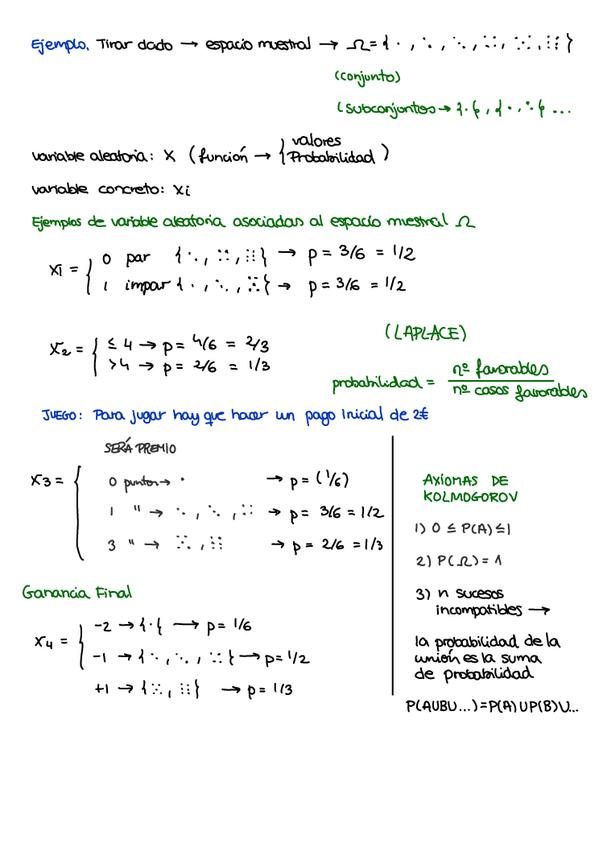 Ejemplo. Tirar dado → espacio muestral → Ω = { ⚀ , ⚁ , ⚂ , ⚃ , ⚄ , ⚅ }
(conjunto)
(subconjuntos → {⚀} , {⚀ , ⚂} ...
variable aleatoria: X (función → { valores
Probabilidad )
variable concreto: Xi
Ejemplos de variable aleatoria asociadas al espacio muestral Ω
X1 = { 0 par {⚁ , ⚃ , ⚅} → p = 3/6 = 1/2
1 impar {⚀ , ⚂ , ⚄} → p = 3/6 = 1/2
X2 = { ≤ 4 → p = 4/6 = 2/3
>4 → p = 2/6 = 1/3
(LAPLACE)
probabilidad = nº favorables
nº casos favorables
JUEGO: Para jugar hay que hacer un pago inicial de 2€
SERÁ PREMIO
X3 = { 0 puntos → ⚀ → p = (1/6)
1 " → ⚁ , ⚂ , ⚃ → p = 3/6 = 1/2
3 " → ⚄ , ⚅ → p = 2/6 = 1/3
Ganancia Final
X4 = { -2 → {⚀} → p = 1/6
-1 → {⚁ , ⚂ , ⚃} → p = 1/2
+1 → {⚄ , ⚅} → p = 1/3
AXIOMAS DE
KOLMOGOROV
1) 0 ≤ P(A) ≤ 1
2) P(Ω) = 1
3) n sucesos
incompatibles →
la probabilidad de la
unión es la suma
de probabilidad
P(AUBU...)=P(A)UP(B)U...